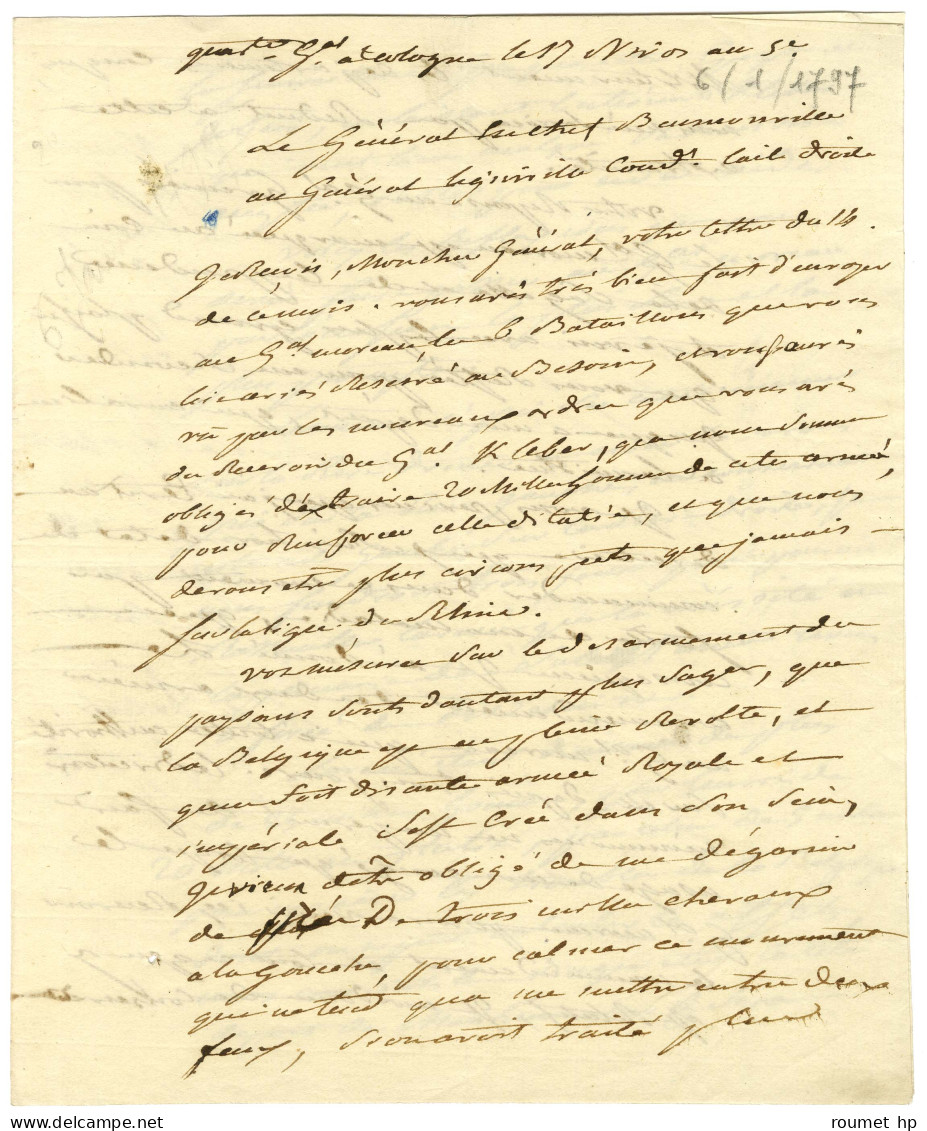 quart. Gal. à Cologne le 17 Nivos an 5e
6/1/1797
Le Général en chef Beurnonville
au Général Ligniville Comdt. l'aile droite
Je Reçois, Mon cher Général, votre lettre du 14
de ce mois. vous avés très bien fait d'envoyer
au Gal. moreau les 6 Bataillons que vous
lui aviés Reservé au Besoin, et vous avés
vû par les nouveaux ordres que vous avés
du Recevoir du Gal. Kleber, que nous sommes
obligés d'extraire 20 Mille hommes de cette armée,
pour Renforcer celle d'italie, et que nous
devons etre plus circonspects que jamais
sur la ligne du Rhin.
vos mésures sur le desarmement des
paysans sonts d'autant plus sages, que
la Belgique est en pleine Revolte, et
qu'une soit disante armée Royale et
impériale s'est Créé dans son sein,
Je viens d'être obligé de me dégarnir
de De trois mille chevaux
a la Gauche, pour calmer ce mouvement
qui ne tend qu'a me mettre entre deux
feux, si on avoit traité
roumet hp